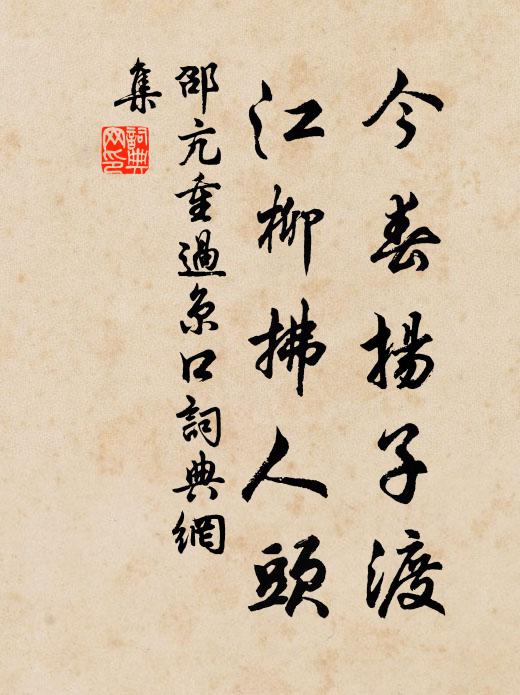 今春揚子渡
江柳拂人頭
邵亢重過京口詞典網
集
詞典
网印